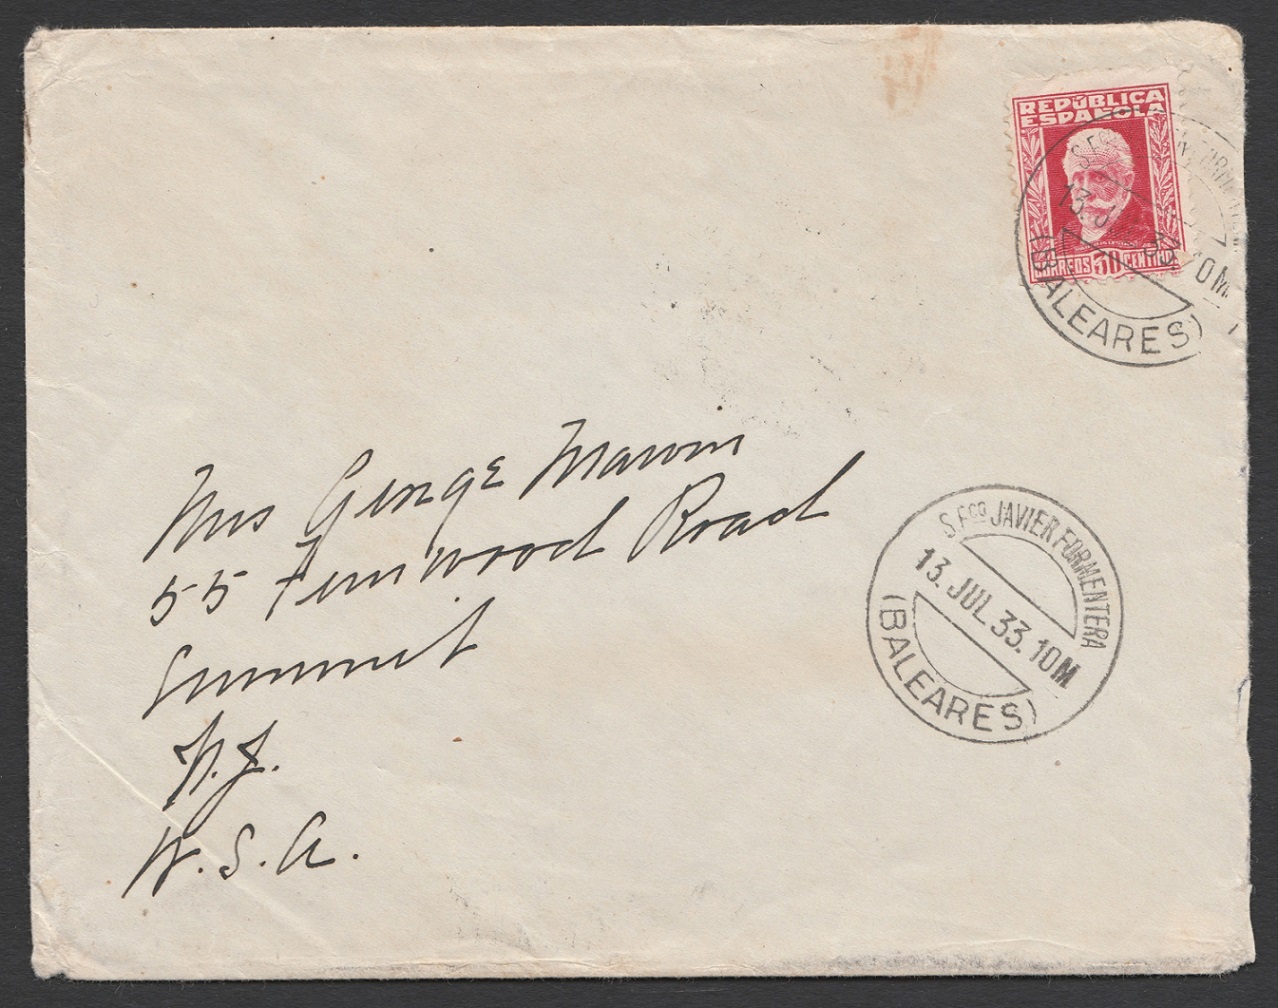 REPÚBLICA
ESPAÑOLA
CORREOS 30 CENTIMOS
S. Fco
13. J
10M
(BALEARES)
Mrs George Marvin
55 Fernwood Road
Summit
N.J.
U.S.A.
S. Fco JAVIER FORMENTERA
13. JUL. 33. 10M
(BALEARES)